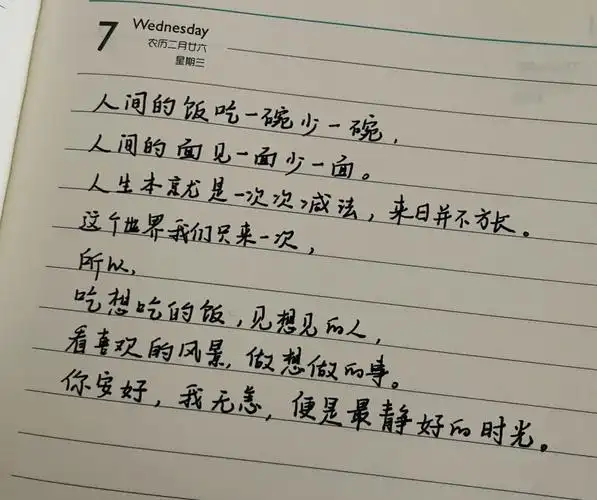 7
Wednesday
农历二月廿六
星期三
人间的饭吃一碗少一碗，
人间的面见一面少一面。
人生本就是一次次减法，来日并不方长。
这个世界我们只来一次，
所以，
吃想吃的饭，见想见的人，
看喜欢的风景，做想做的事。
你安好，我无恙，便是最静好的时光。